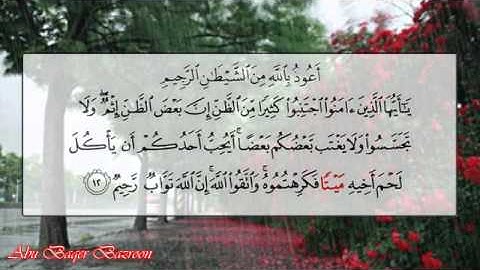 أَعُوذُ بِاللَّهِ مِنَ الشَّيْطَٰنِ الرَّجِيمِ
يَٰٓأَيُّهَا الَّذِينَ ءَامَنُوا۟ اجْتَنِبُوا۟ كَثِيرًا مِّنَ الظَّنِّ إِنَّ بَعْضَ الظَّنِّ إِثْمٌ ۖ وَلَا
تَجَسَّسُوا۟ وَلَا يَغْتَب بَّعْضُكُم بَعْضًا ۚ أَيُحِبُّ أَحَدُكُمْ أَن يَأْكُلَ
لَحْمَ أَخِيهِ مَيْتًا فَكَرِهْتُمُوهُ ۚ وَاتَّقُوا۟ اللَّهَ ۚ إِنَّ اللَّهَ تَوَّابٌ رَّحِيمٌ ١٢
Abu Baqer Bazroon